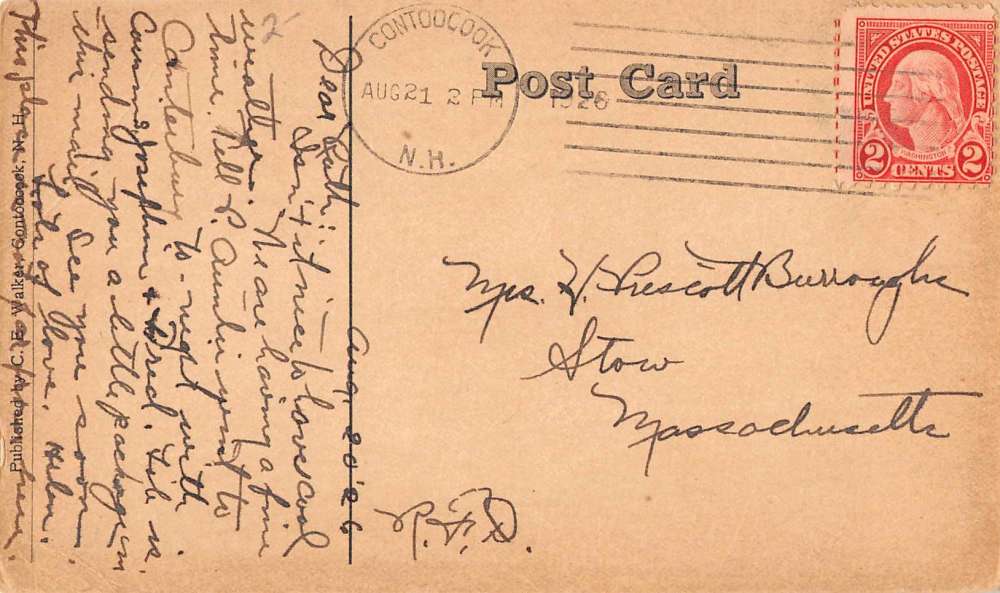 CONTOOCOOK
AUG 21 2 PM 1926
N.H.
Post Card
UNITED STATES POSTAGE
WASHINGTON
2 CENTS 2
Aug. 20 '26
Dear Ruth:
Isn't it nice to have cool
weather. We are having a fine
time. Nell & Auntie went to
Canterbury to meet with
Cousin Josephine & Fred. Lib is
sending you a little package in
this mail. See you soon.
Lots of love. Helen.
This
Mrs. H. Prescott Burroughs
Stow
Massachusetts
R.F.D.
Published by C. E. Walker, Contoocook, N. H.